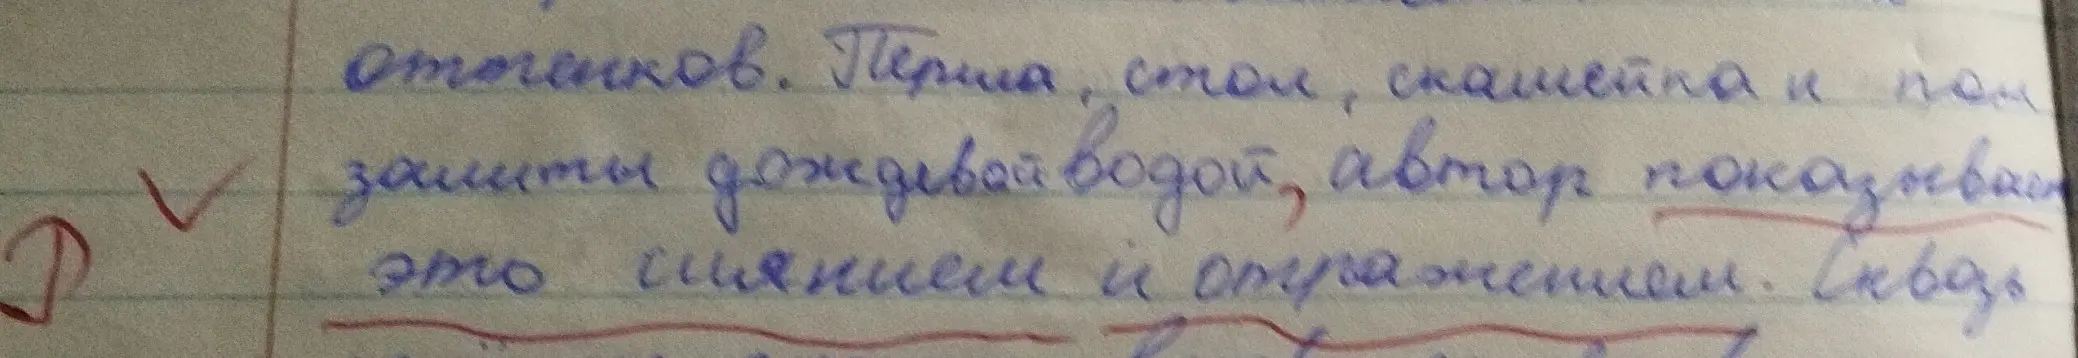 оттенков. Перила, стол, скамейка и пол
залиты дождевой водой, автор показывает
это сиянием и отражением. Сквозь